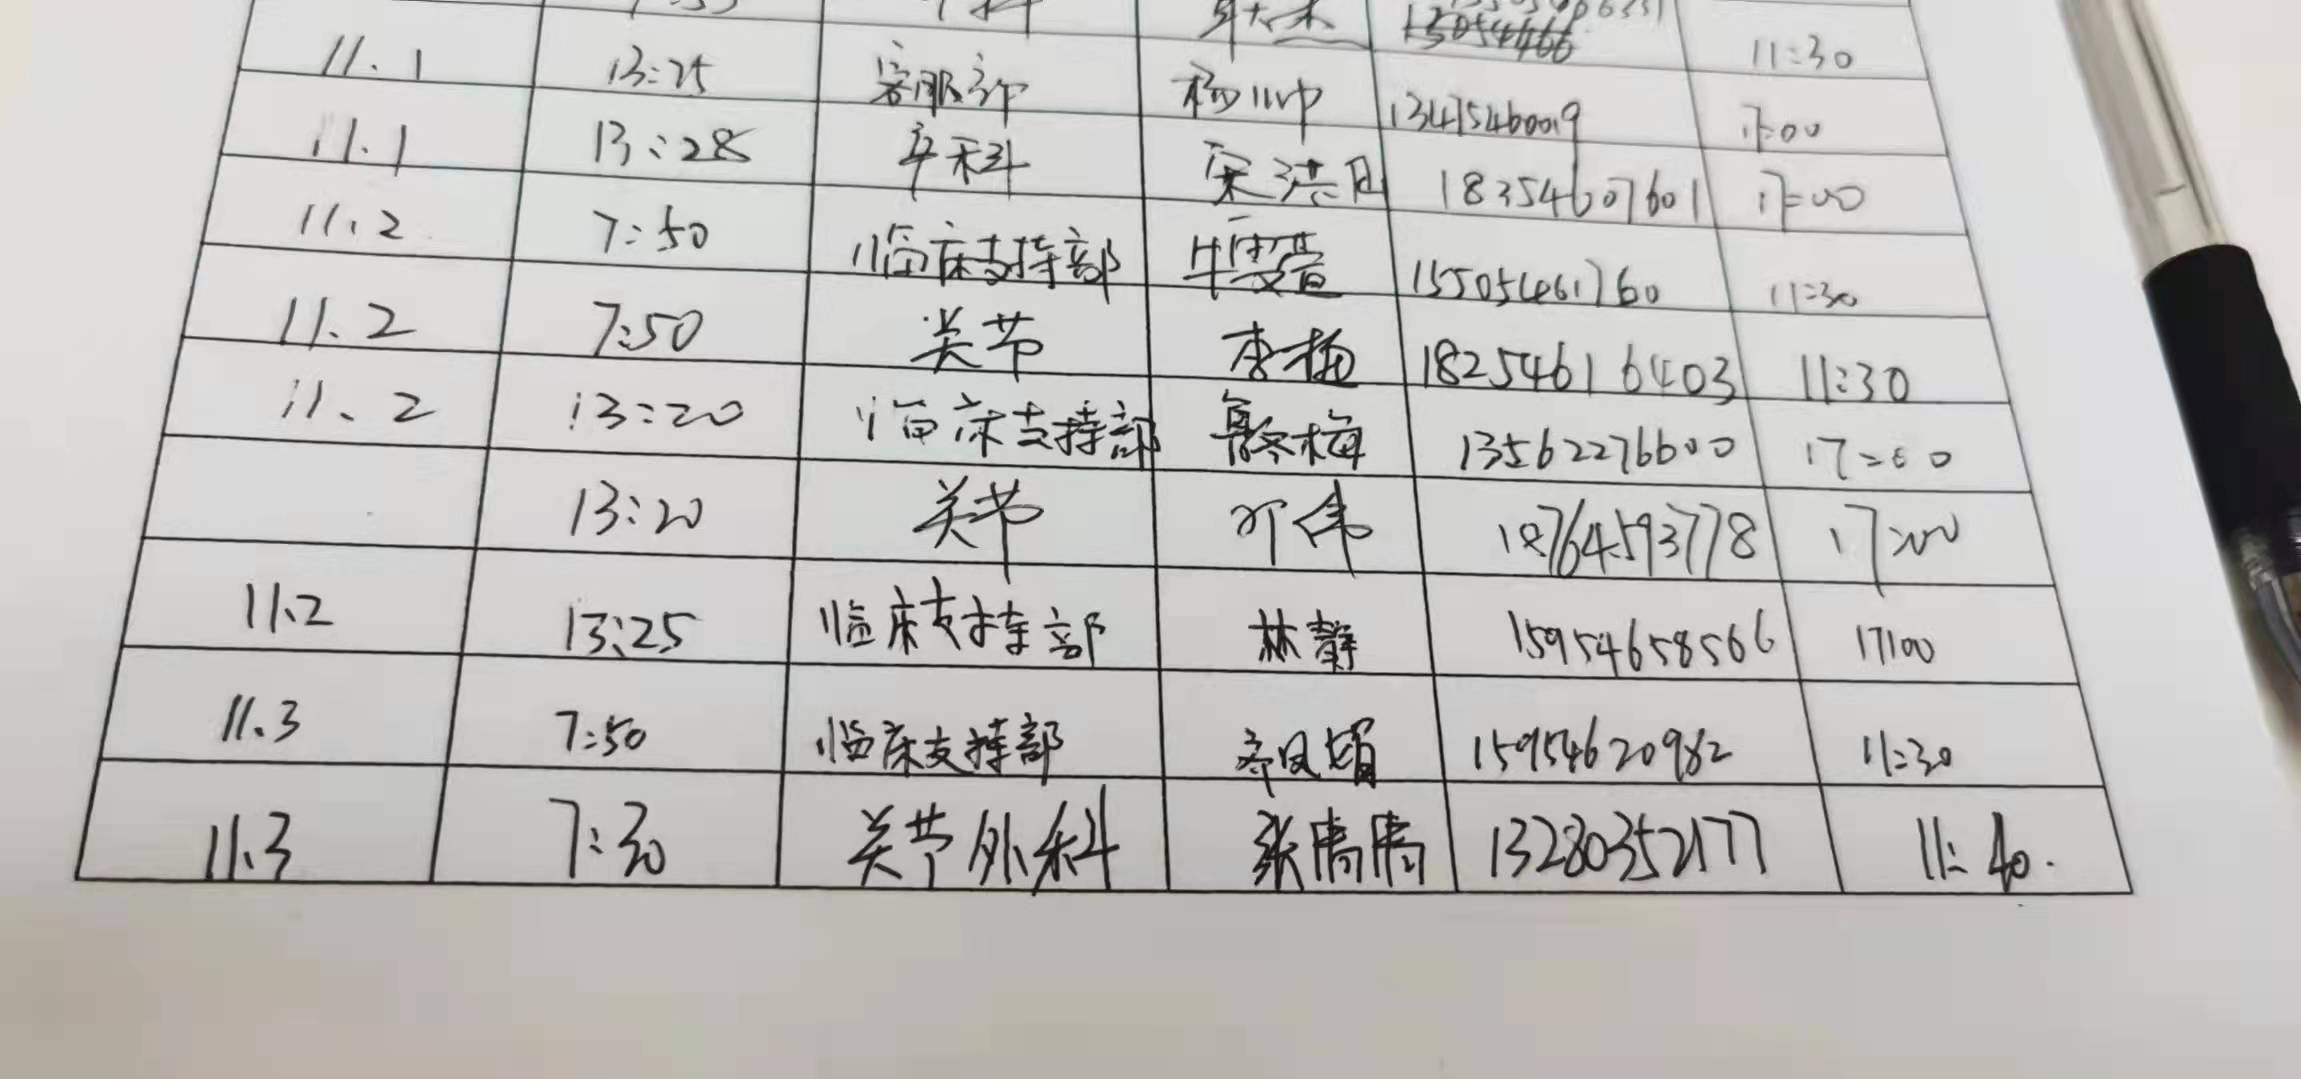 11:30
11.1 13:25 客服部 杨川中 13475460019 17:00
11.1 13:28 卒科 宋洪 18354607601 17:00
11.2 7:50 临床支持部 15505461760 11:30
11.2 7:50 关节 李梅 18254616403 11:30
11.2 13:20 临床支持部 鲁冬梅 13562276600 17:00
13:20 关节 邓伟 18764593778 17:00
11.2 13:25 临床支持部 林静 15954658566 17:00
11.3 7:50 临床支持部 齐凤娟 15954620982 11:30
11.3 7:30 关节外科 张倩倩 13280352177 11:40.